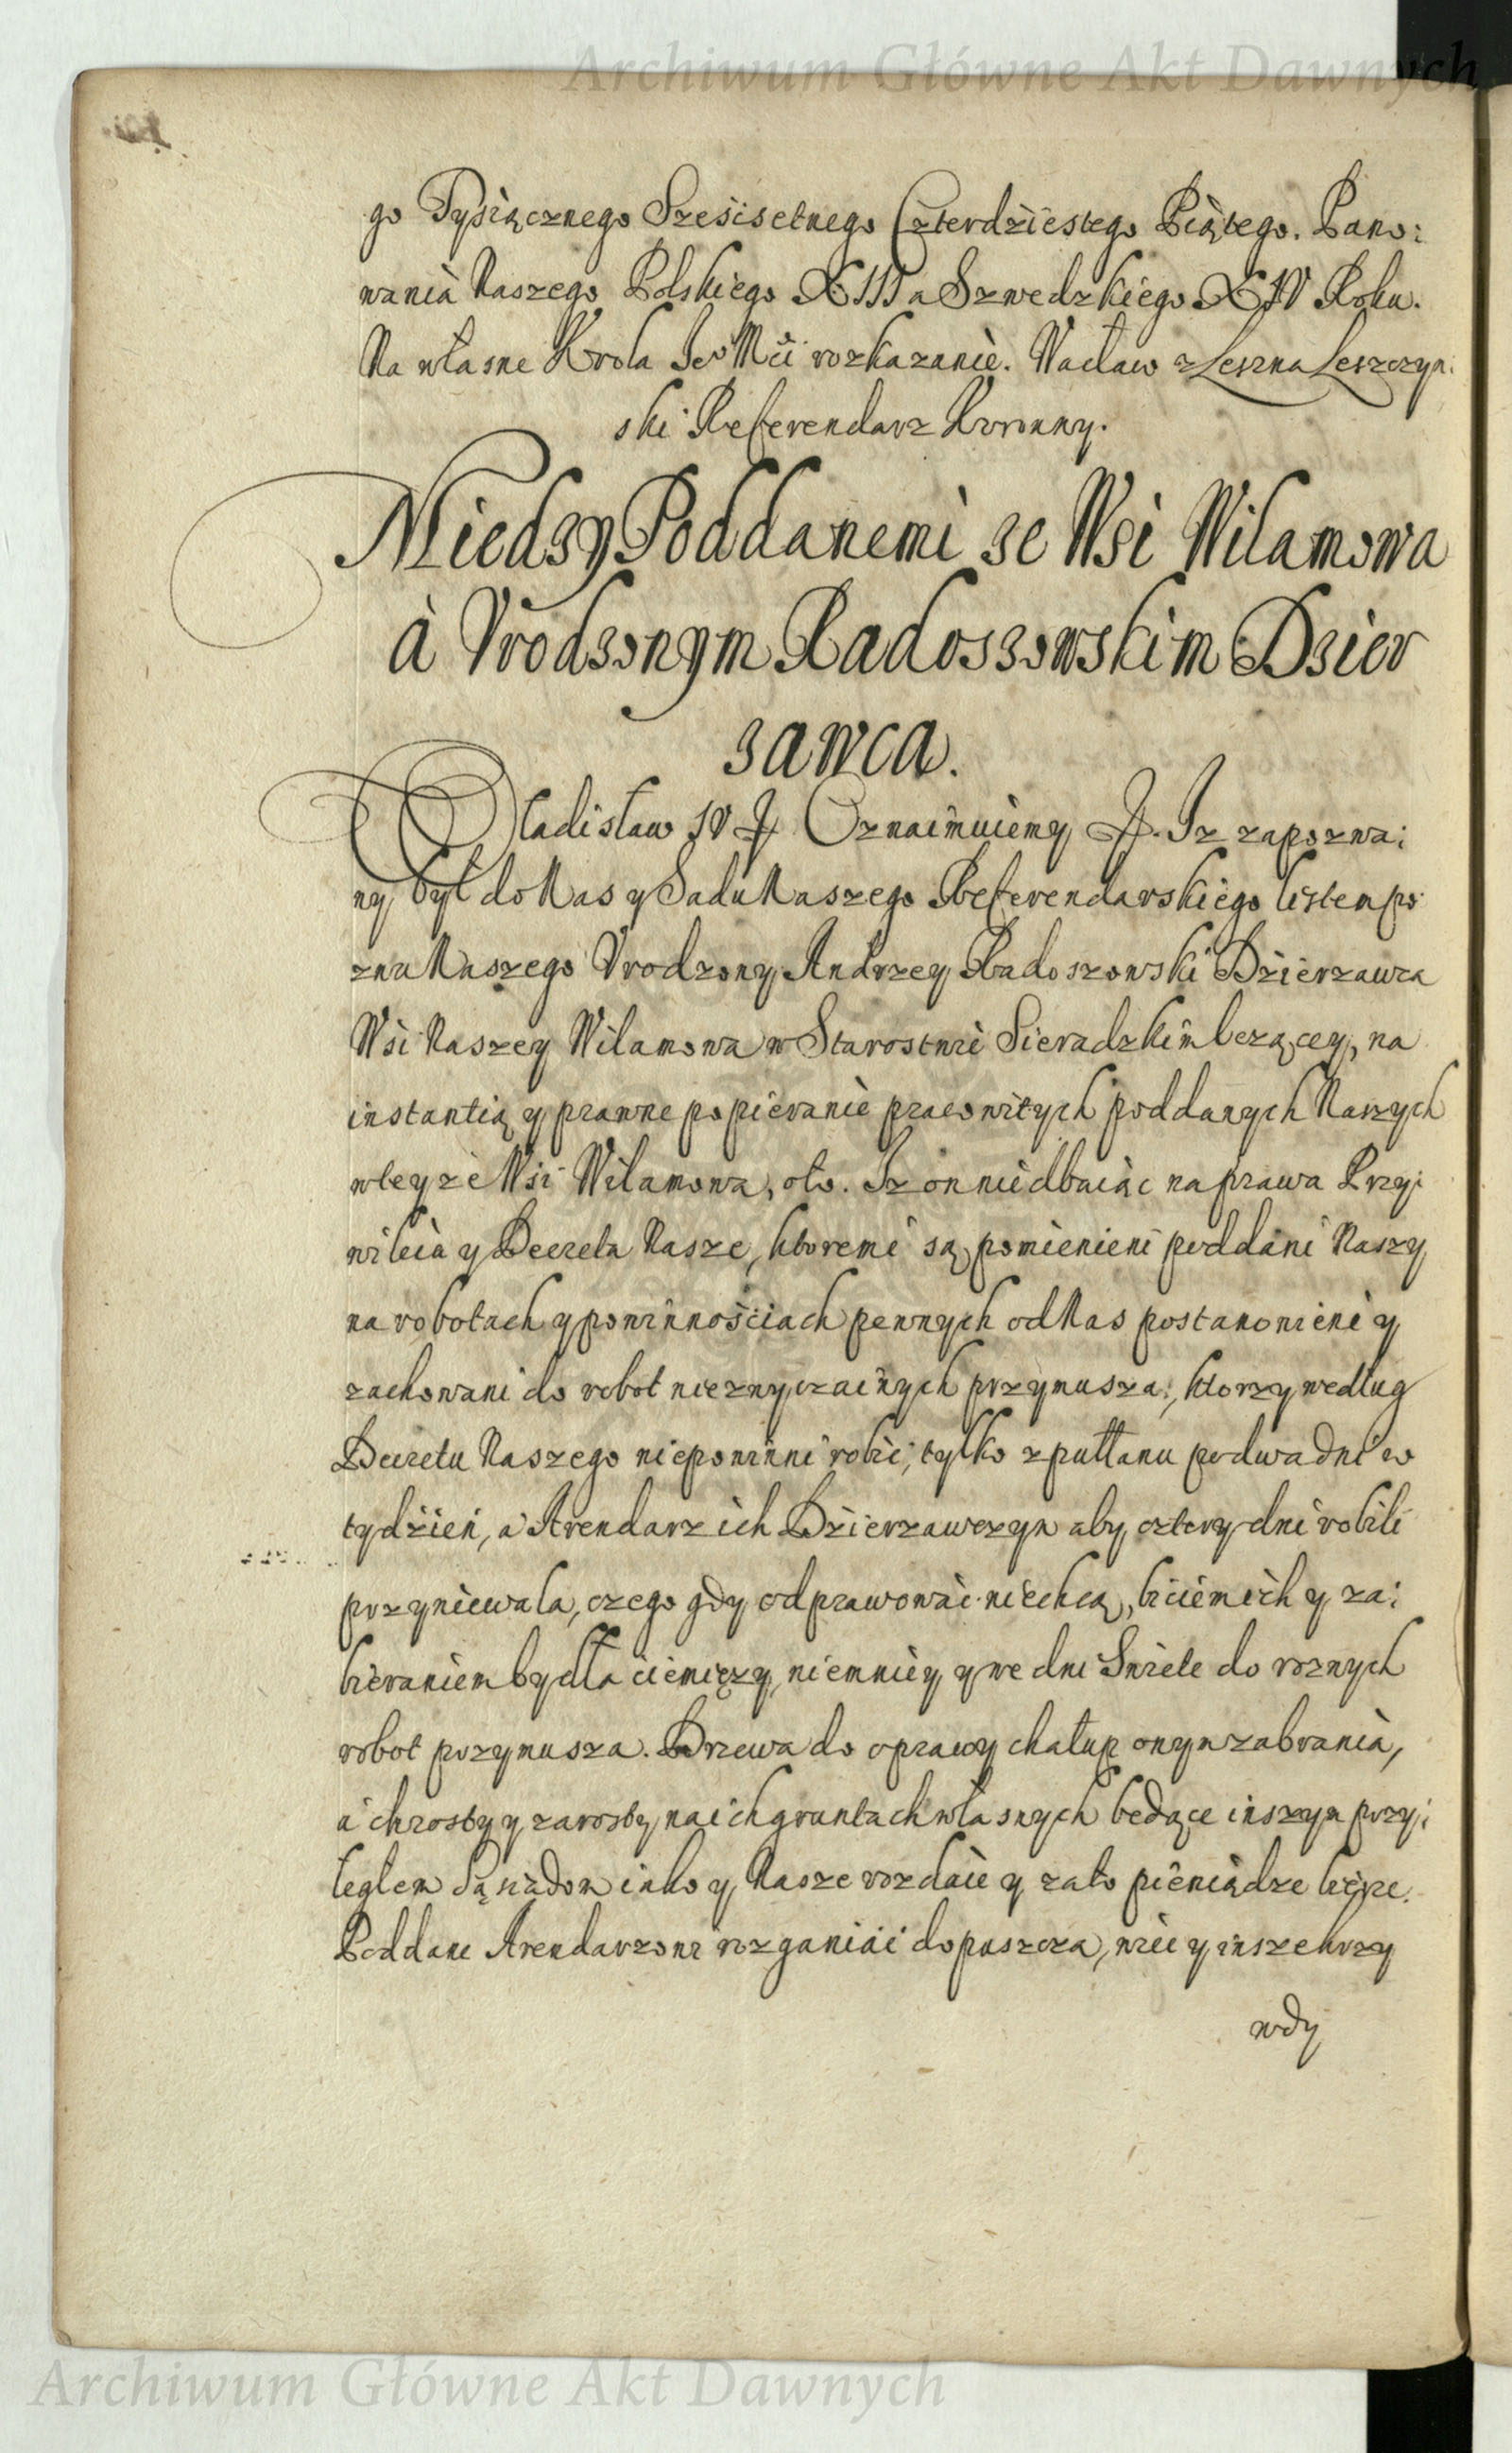 Archiwum Główne Akt Dawnych
go Tysiącznego Sześćsetnego Czterdziestego Piątego. Pano:
wania Naszego Polskiego XIII a Szwedzkiego XIV Roku.
Na własne Krola Je° Mći rozkazanie. Wacław z Leszna Leszczyn:
ski Referendarz Koronny.
Miedzy Poddanemi ze Wsi Wilamowa
à Vrodzonym Radoszowskim Dzier
zawca.
Wladisław IV Oznaimuiemy Iz zapozwa:
ny był do Nas y Sadu Naszego Referendarskiego listem po
zwu Naszego Vrodzony Andrzey Radoszowski Dzierzawca
Wsi Naszey Wilamowa w Starostwie Sieradzkim lezącey, na
instantią y prawne popieranie pracowitych poddanych Naszych
wteyze Wsi Wilamowa, oto. Iz on niedbaiąc na prawa Przy:
wileia y Decreta Nasze, ktoremi są pomienieni poddani Naszy
na robotach y powinnościach pewnych od Nas postanowieni y
zachowani do robot niezwyczainych przymusza, ktorzy według
Decretu Naszego niepowinni robić, tylko z pułłanu podwa dni w
tydzień, a Arendarz ich Dzierzawczyn aby cztery dni robili
przyniewala, czego gdy odprawować niechcą, biciem ich y za:
bieraniem bydła ciemięzy, niemniey y we dni Swięte do roznych
robot przymusza. Drzewa do oprawy chałup onym zabrania,
a chrosty y zarosty na ich gruntach własnych będące inszym przy:
ległem Sąsiadom iako y Nasze rozdaie y zato pieniądze bierze.
Poddane Arendarzowi rozganiać dopuszcza, wiec y insze krzy
wdy
Archiwum Główne Akt Dawnych